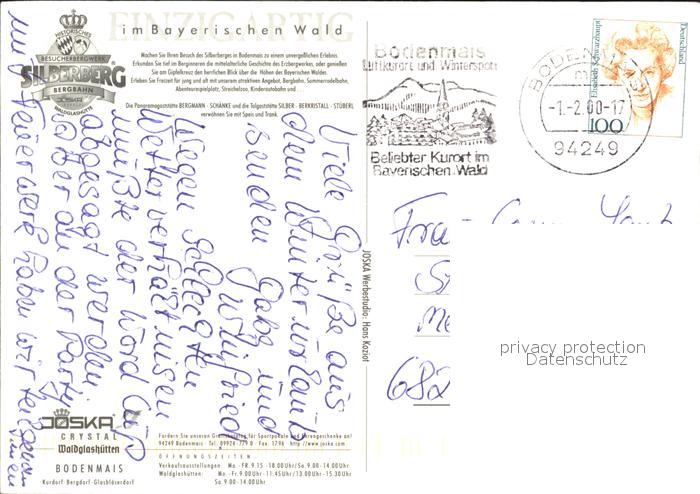 EINZIGARTIG
im Bayerischen Wald
HISTORISCHES
BESUCHERBERGWERK
SILBERBERG
BERGBAHN
JOSKA
WALDGLASHÜTTE
Machen Sie Ihren Besuch des Silberberges in Bodenmais zu einem unvergeßlichen Erlebnis.
Erkunden Sie tief im Berginneren die mittelalterliche Geschichte des Erzbergwerkes, oder genießen
Sie am Gipfelkreuz den herrlichen Blick über die Höhen des Bayerischen Waldes.
Erleben Sie Freizeit für jung und alt mit unserem attraktiven Angebot, Bergbahn, Sommerrodelbahn,
Abenteuerspielplatz, Streichelzoo, Kinderautobahn u.a.
Die Panoramagaststätte BERGMANN - SCHÄNKE und die Talgaststätte SILBER - BERKRISTALL - STÜBERL
verwöhnen Sie mit Speis und Trank.
Viele Grüße aus
dem Winterurlaub
senden Gabi und
Winfried
Wegen schlechten
Wetterverhältnissen
mußte der World Cup
abgesagt werden
aber an der Party
mit Feuerwerk haben wir teil
JOSKA
CRYSTAL
Waldglashütten
BODENMAIS
Kurdorf · Bergdorf · Glasbläserdorf
Fordern Sie unseren Gratiskatalog für Sportpokale und Ehrengeschenke an!
94249 Bodenmais · Tel. 09924-779 0 · Fax 1796 · http://www.joska.com
ÖFFNUNGSZEITEN
Verkaufsausstellungen: Mo.-FR. 9.15 -18.00 Uhr/Sa. 9.00 -14.00 Uhr.
Waldglashütten: Mo.-Fr. 9.00Uhr -11.45 Uhr/13.00Uhr -15.30 Uhr
Sa. 9.00 -14.00Uhr
JOSKA Werbestudio: Hans Koziol
Bodenmais
Luftkurort und Wintersport
Beliebter Kurort im
Bayerischen Wald
BODENMAIS
-1.-2.00-17
94249
Elisabeth Schwarzhaupt
Deutschland
100
Frau
682
privacy protection
Datenschutz